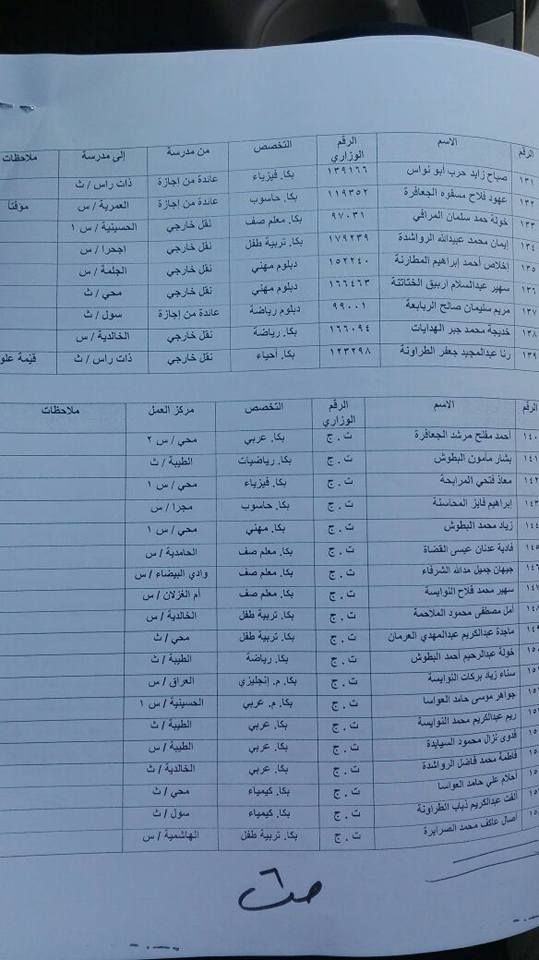 الرقم الاسم الرقم الوزاري التخصص من مدرسة إلى مدرسة ملاحظات
١٣١ صباح زايد حرب أبو نواس ١٣٩١٦٦ بكا. فيزياء عائدة من إجازة ذات راس / ث
١٣٢ عهود فلاح مسفوه الجعافرة ١١٩٣٥٢ بكا. حاسوب عائدة من إجازة العمرية / س مؤقتا
١٣٣ خولة حمد سلمان المرافي ٩٧٠٣١ بكا. معلم صف نقل خارجي الحسينية / س ١
١٣٤ إيمان محمد عبيدالله الرواشدة ١٧٩٢٣٩ بكا. تربية طفل نقل خارجي اجحرا / س
١٣٥ إخلاص أحمد إبراهيم المطارنة ١٥٢٢٤٠ دبلوم مهني نقل خارجي الجلمة / س
١٣٦ سهير عبدالسلام اربيق الختاتنة ١٦٦٤٦٣ دبلوم مهني نقل خارجي محي / ث
١٣٧ مريم سليمان صالح الربابعة ٩٩٠٠١ دبلوم رياضة عائدة من إجازة سول / ث
١٣٨ خديجة محمد جبر الهدايات ١٦٦٠٩٤ بكا. رياضة نقل خارجي الخالدية / س
١٣٩ رنا عبدالمجيد جعفر الطراونة ١٢٣٢٩٨ بكا. أحياء نقل خارجي ذات راس / ث قيّمة
الرقم الاسم الرقم الوزاري التخصص مركز العمل ملاحظات
١٤٠ أحمد مفلح مرشد الجعافرة ت . ج بكا. عربي محي / س ٢
١٤١ بشار مأمون البطوش ت . ج بكا. رياضيات الطيبة / ث
١٤٢ معاذ فتحي المرابحة ت . ج بكا. فيزياء محي / س ١
١٤٣ إبراهيم فايز المحاسنة ت . ج بكا. حاسوب مجرا / س
١٤٤ زياد محمد البطوش ت . ج بكا. مهني محي / س ١
١٤٥ فادية عدنان عيسى القضاة ت . ج بكا. معلم صف الحامدية / س
١٤٦ جيهان جميل مدالله الشرفاء ت . ج بكا. معلم صف وادي البيضاء / س
١٤٧ سهير محمد فلاح النوايسة ت . ج بكا. معلم صف أم الغزلان / س
١٤٨ أمل مصطفى محمود الملاحمة ت . ج بكا. تربية طفل الخالدية / س
١٤٩ ماجدة عبدالكريم عبدالمهدي العرمان ت . ج بكا. تربية طفل محي / ث
خولة عبدالرحيم أحمد البطوش ت . ج بكا. رياضة الطيبة / ث
سناء زياد بركات النوايسة ت . ج بكا. م. إنجليزي العراق / س
جواهر موسى حامد العواسا ت . ج بكا. م. عربي الحسينية / س ١
ريم عبدالكريم محمد النوايسة ت . ج بكا. عربي الطيبة / ث
فدوى نزال محمود السيايدة ت . ج بكا. عربي الطيبة / س
فاطمة محمد فاضل الرواشدة ت . ج بكا. عربي الخالدية / ث
أحلام علي حامد العواسا ت . ج بكا. كيمياء محي / ث
ألفت عبدالكريم ذياب الطراونة ت . ج بكا. كيمياء سول / ث
آصال عاكف محمد الصرايرة ت . ج بكا. تربية طفل الهاشمية / س